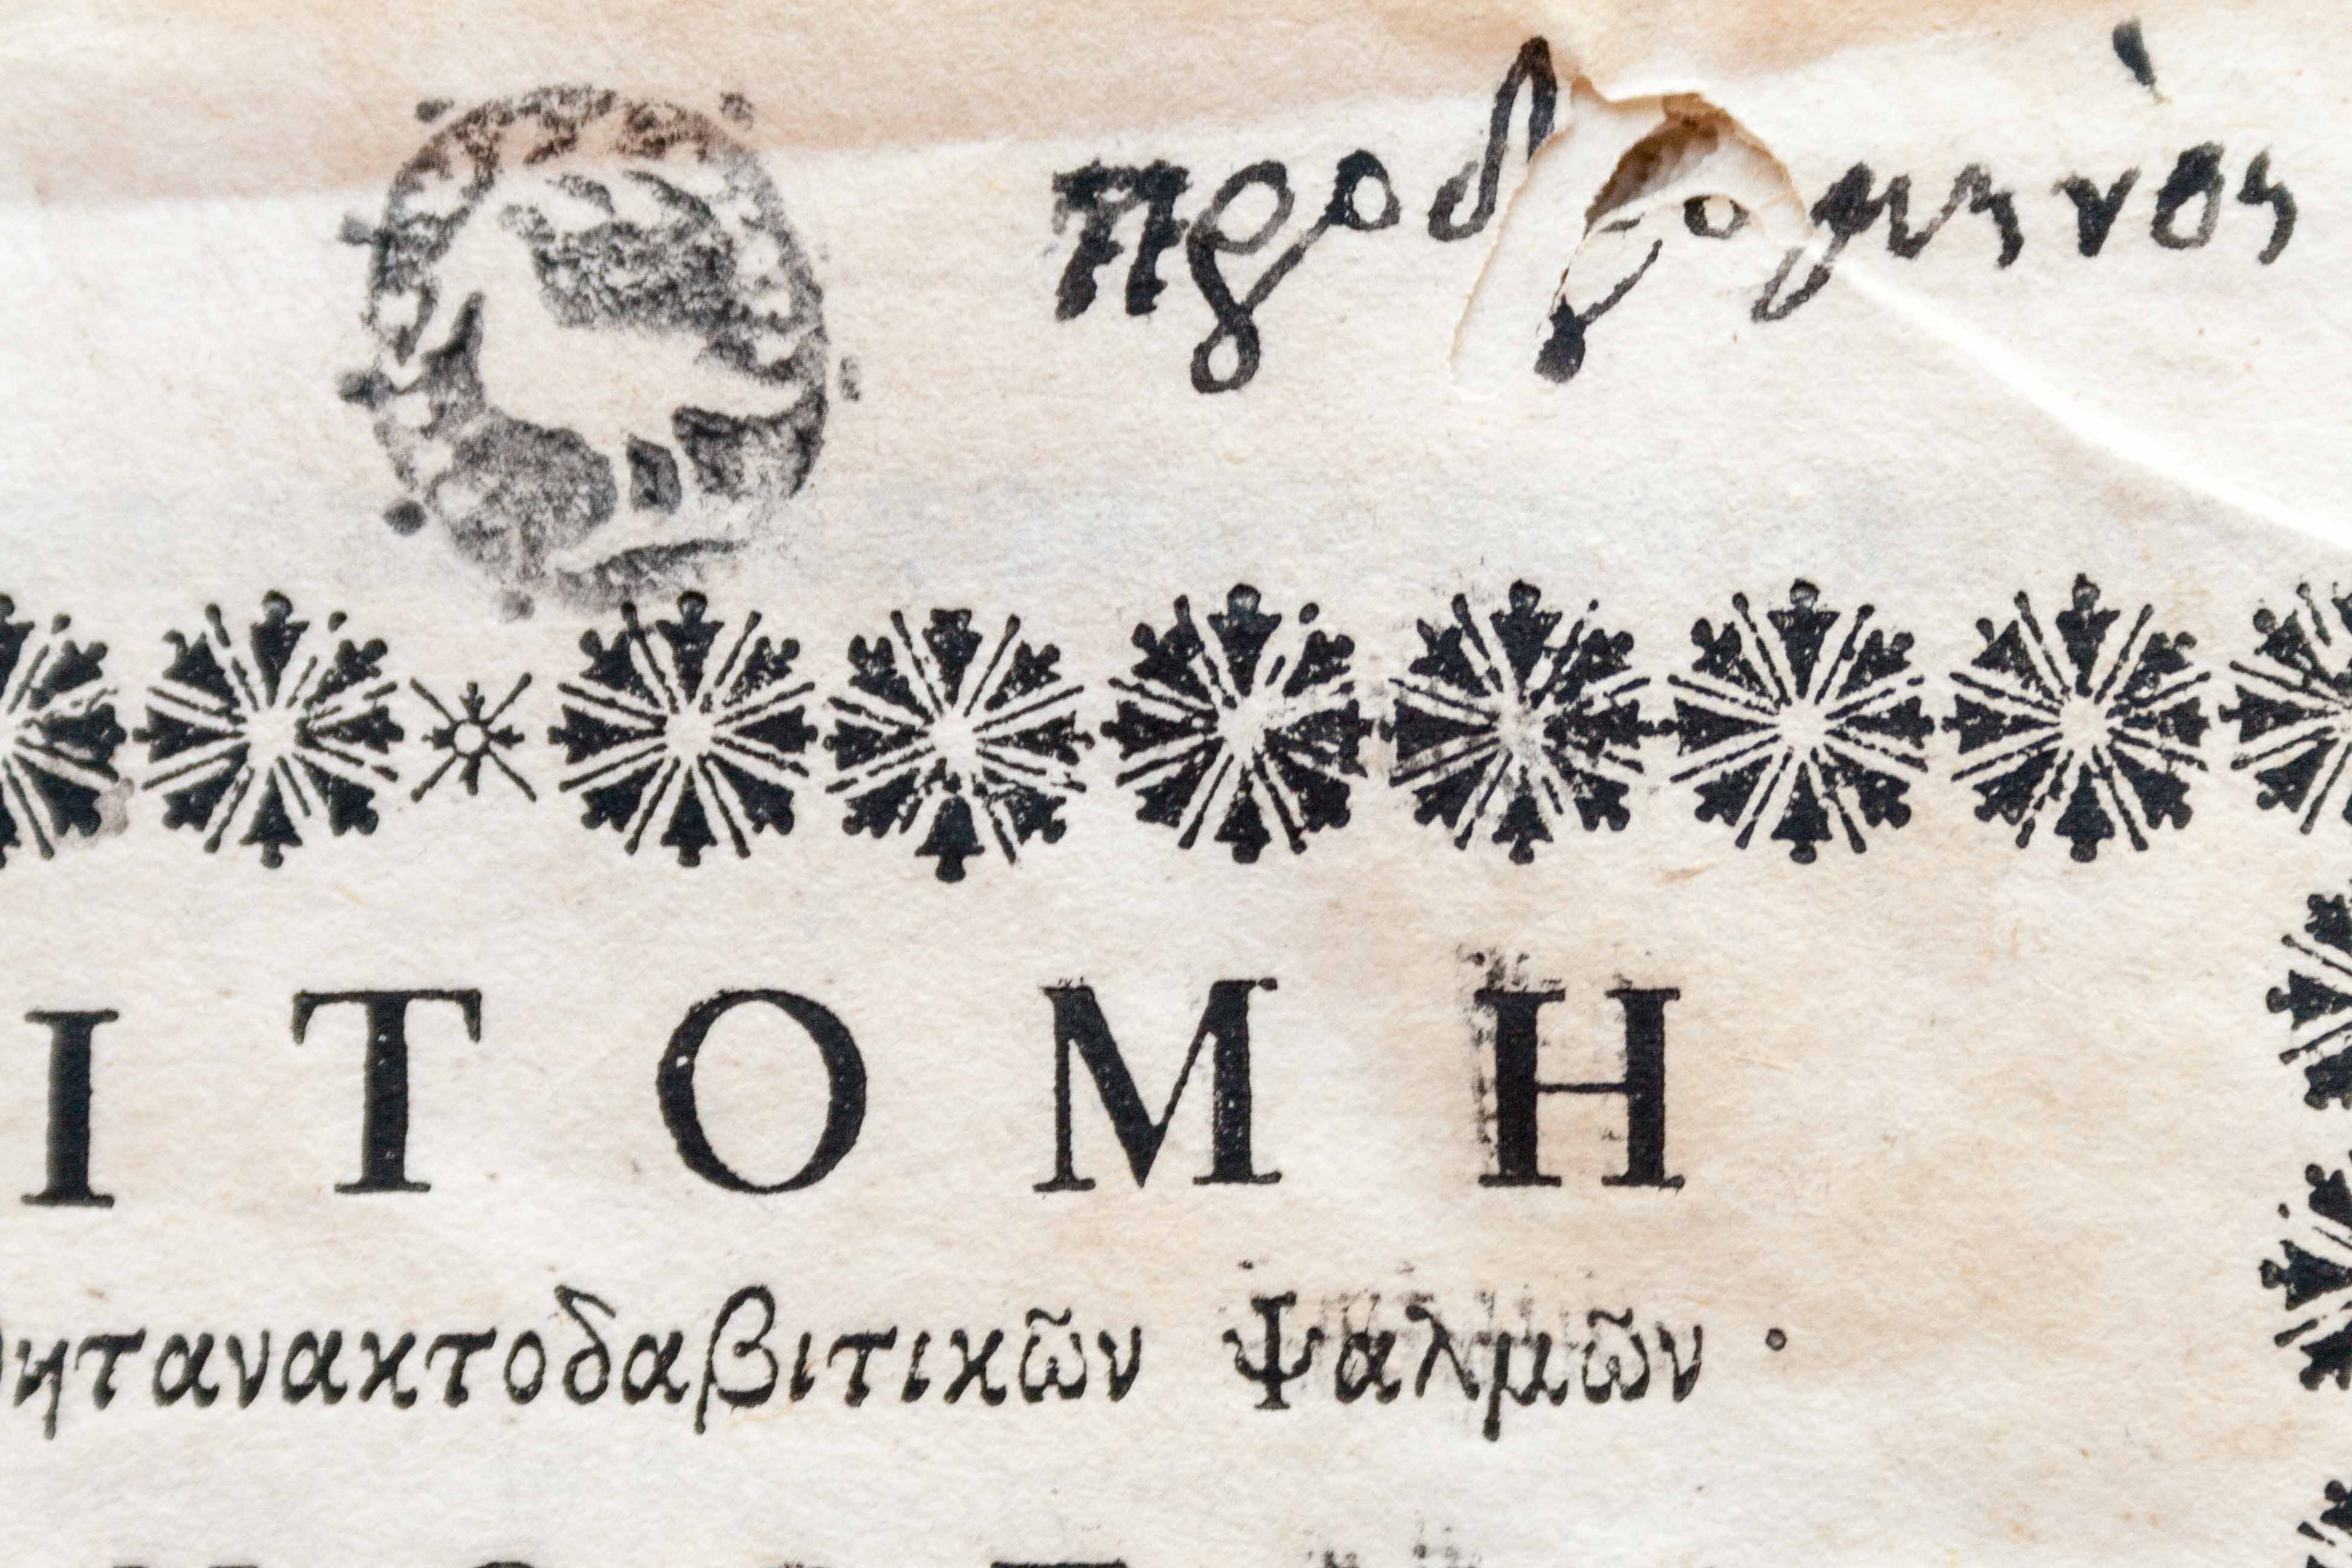 προδρομηνὸς
ΙΤΟΜΗ
ητανακτοδαβιτικῶν Ψαλμῶν ·